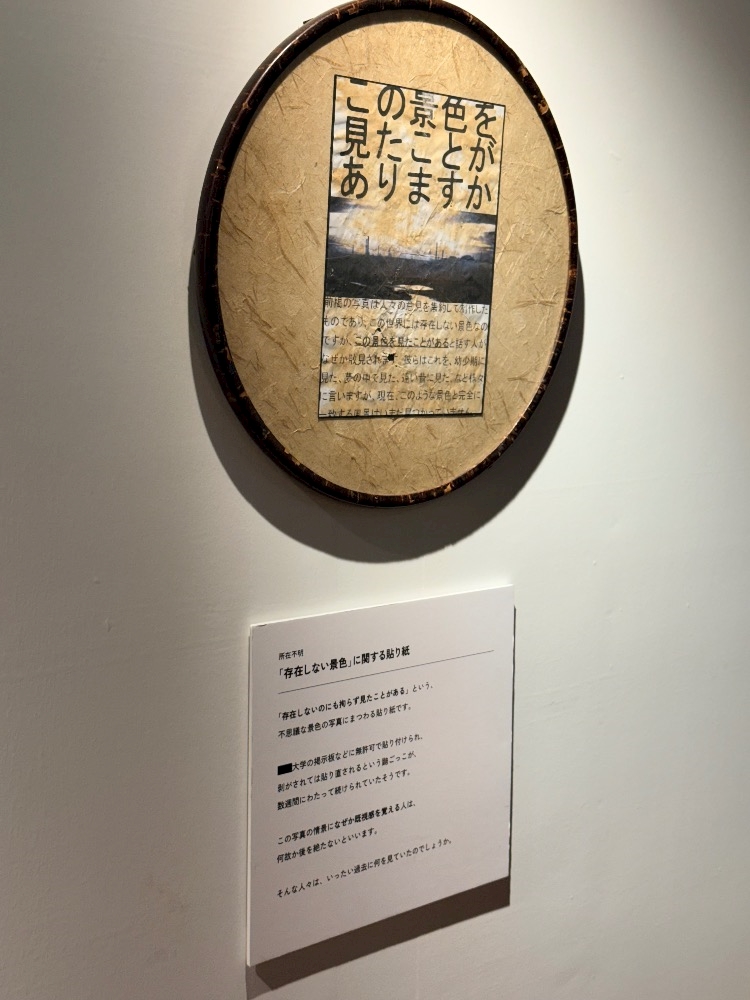 この景色を
見たことが
ありますか
前掲の写真は人々の意見を集約して制作した
ものであり、この世界には存在しない景色なの
ですが、この景色を見たことがあると話す人が
なぜか散見されます。彼らはこれを、幼少期に
見た、夢の中で見た、遠い昔に見た、など様々
に言いますが、現在、このような景色と完全に
一致する風景はいまだ見つかっていません。
所在不明
「存在しない景色」に関する貼り紙
「存在しないのにも拘らず見たことがある」という、
不思議な景色の写真にまつわる貼り紙です。
大学の掲示板などに無許可で貼り付けられ、
剝がされては貼り直されるという鼬ごっこが、
数週間にわたって続けられていたそうです。
この写真の情景になぜか既視感を覚える人は、
何故か後を絶たないといいます。
そんな人々は、いったい過去に何を見ていたのでしょうか。